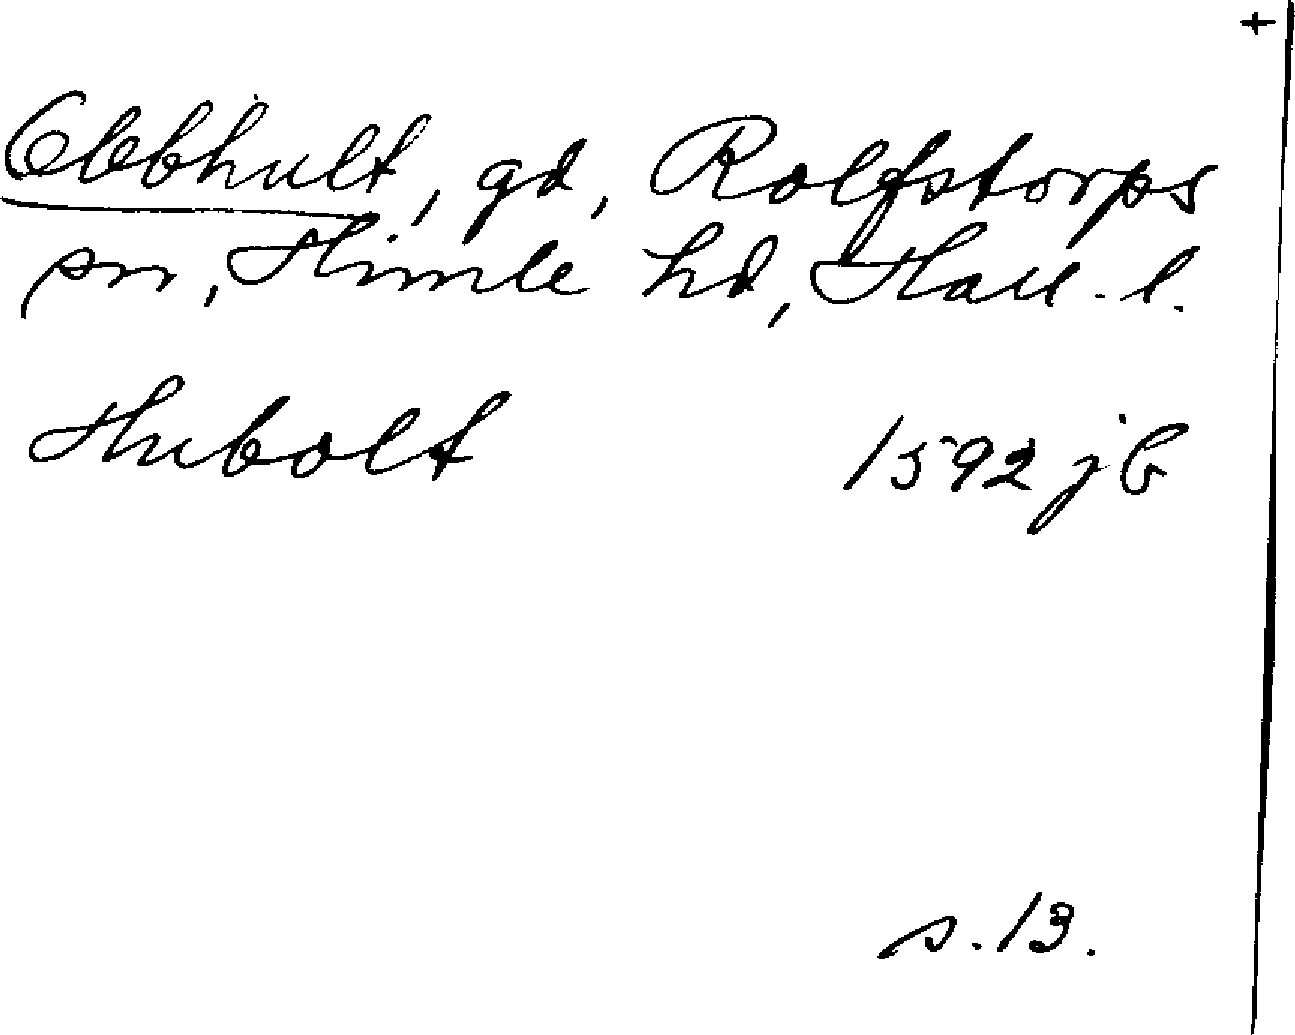 +
Obbhult, gd, Rolfstorps
sn, Himle hd, Hall. l.
Hubolt 1592 jb
s. 13.